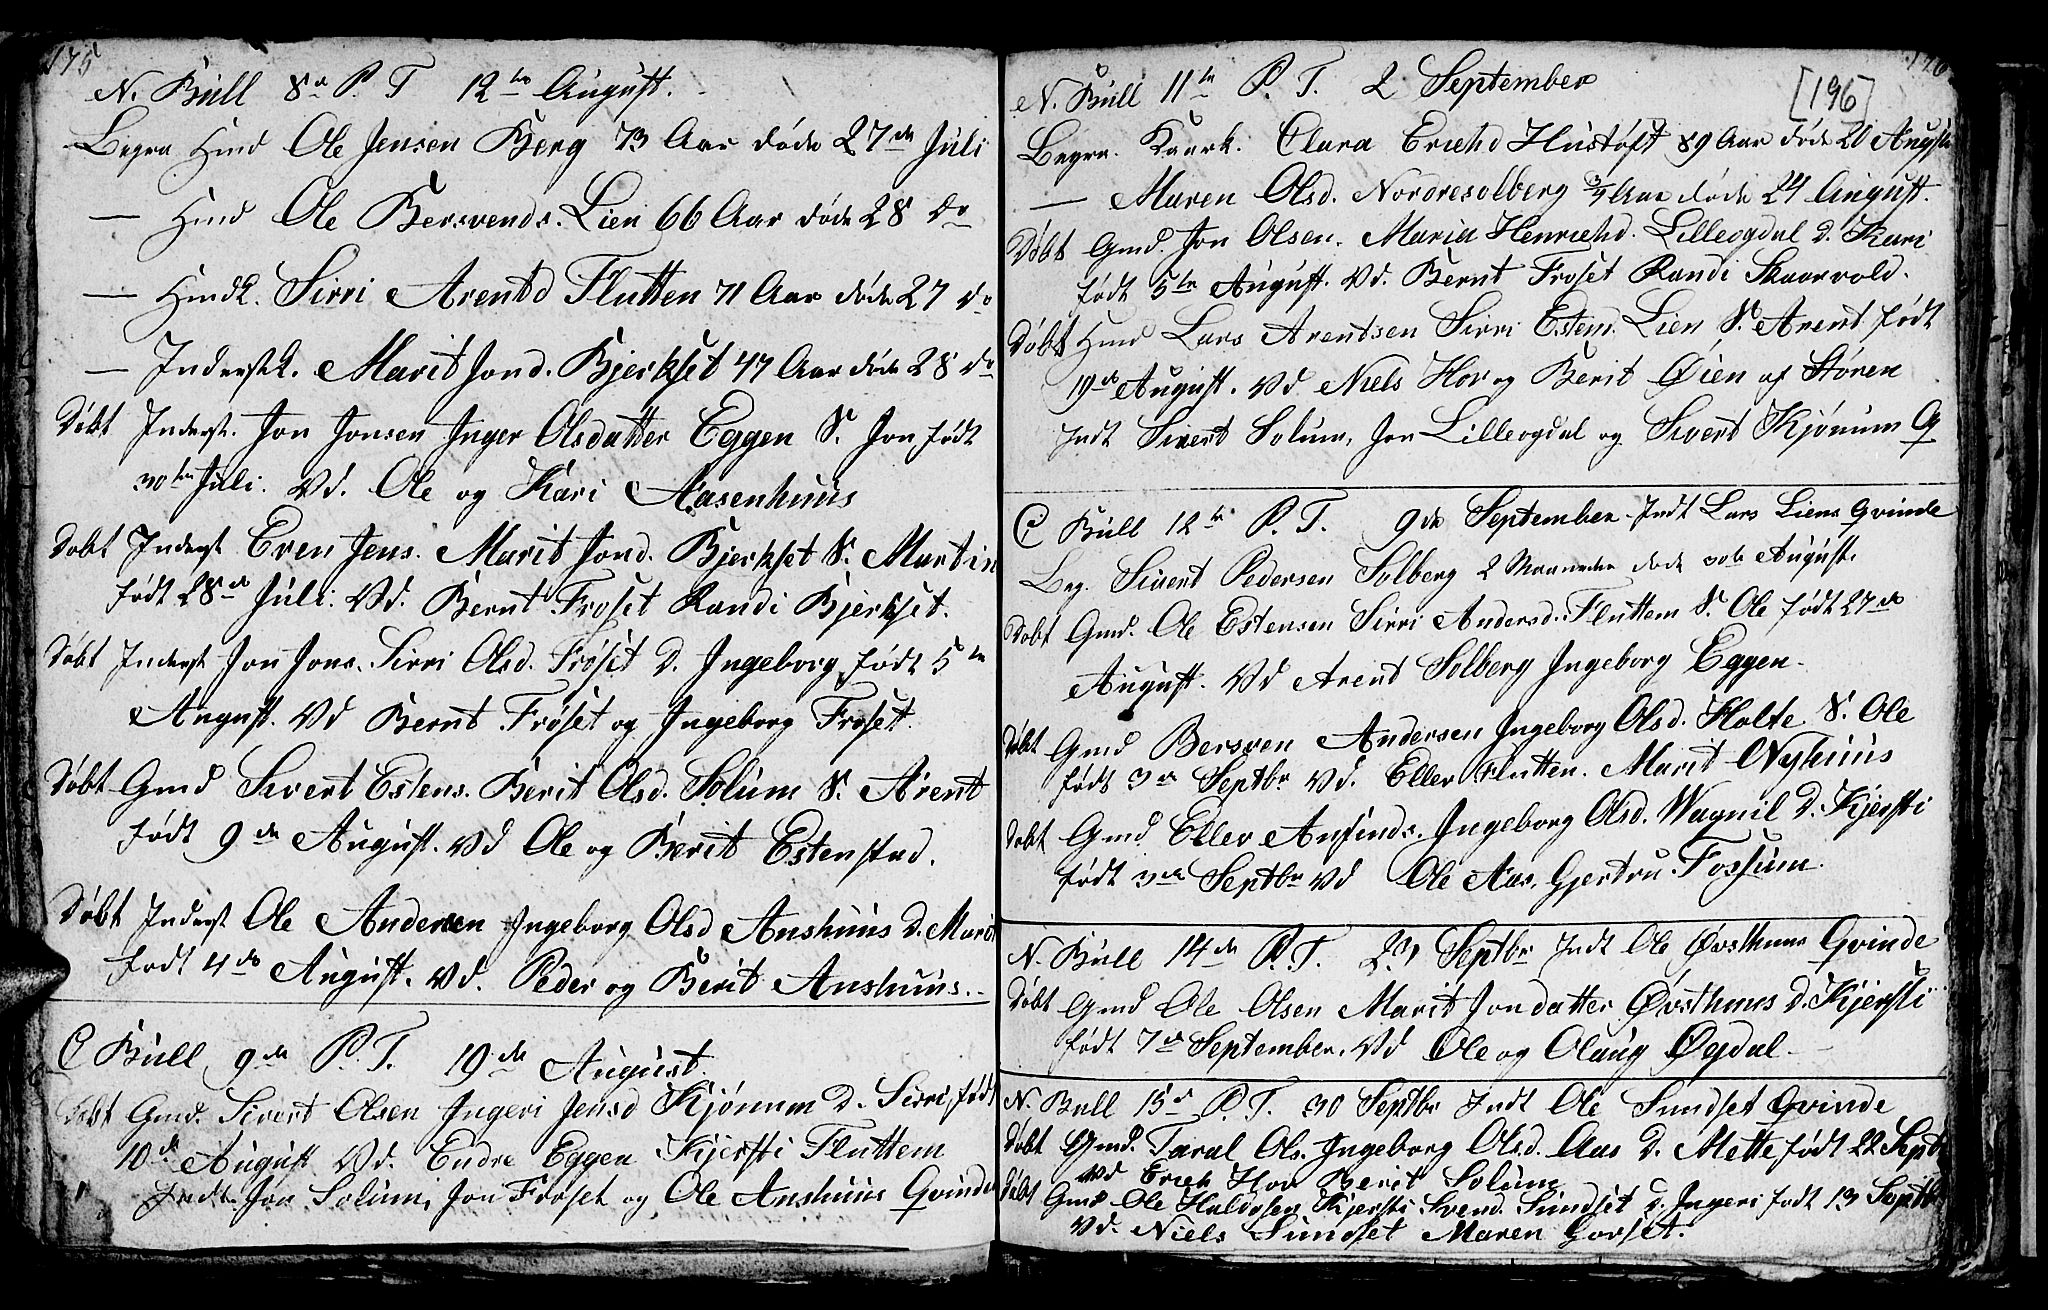 175
N. Büll 8de P. T 12te August.
Begra Hmd Ole Jensen Berg 73 Aar døde 27de Juli
— Hmd Ole Bersvends. Lien 66 Aar døde 28 do
— Hmdk. Sirri Arentd Flutten 71 Aar døde 27 do
— Inderstk. Marit Jond. Bjerkset 47 Aar døde 28 do
Døbt Inderst. Jon Jonsen Inger Olsdatter Eggen S. Jon født
30te Juli. Vd. Ole og Kari Aasenhuus
Døbt Inderst Even Jens. Marit Jond. Bjerkset S. Martin
født 28de Juli. Vd. Bernt Froset Randi Bjerkset.
Døbt Inderst Jon Jons. Sirri Olsd. Frøset D. Ingeborg født 5te
August. Vd Bernt Frøset og Ingeborg Froset
Døbt Gmd Sivert Estens. Berit Olsd. Solum S. Arent
født 9de August. Vd Ole og Berit Estenstad.
Døbt Inderst Ole Andersen Ingeborg Olsd Anshuus D. Marit
født 4de August. Vd. Peder og Berit Anshuus.
C Büll 9de P. T. 19de August.
Døbt Gmd. Sivert Olsen Ingeri Jensd Kjønum D. Sirri, født
10de August Vd. Endre Eggen Kjersti Fluttem
Indt. Jon Solum, Jon Froset og Ole Anshuus Qvinde
176
[196]
N. Büll 11te P. T. 2 September
Begra. Kaark. Clara Erichd Hustøft 89 Aar døde 20 August
— Maren Olsd. Nordresolberg 3/4 Aar døde 24 August.
Døbt Gmd. Jon Olsen. Maria Henrichd. Lilleogdal D. Kari
født 5te August. Vd. Bernt Froset Randi Skaarvold.
Døbt Hmd Lars Arentsen Sirri Estem. Lien S. Arent født
19de August. Vd Niels Hov og Berit Øien af Støren
Indt Sivert Solum, Jon Lilleogdal og Sivert Kjønum Q
C Büll 12te P. T. 9de September Indt Lars Liens Qvinde
Beg. Sivert Pedersen Solberg 2 Maaneder døde 30te August.
Døbt Gmd. Ole Estensen Sirri Andersd. Fluttem S. Ole født 27de
August. Vd Arent Solberg Ingeborg Eggen.
Døbt Gmd Bersven Andersen Ingeborg Olsd. Holte S. Ole
født 3de Septbr Vd. Ellev Flutten. Marit Nyhuus
Døbt Gmd Ellev Anfinds. Ingeborg Olsd. Wagnil D. Kjersti
født 3de Septbr Vd Ole Aas, Gjertru Fossum.
N. Büll 14de P. T. 23 Septbr Indt Ole Øvsthuus Qvinde
Døbt Gmd Ole Olsen Marit Jondatter Øvsthuus D. Kjersti
født 7de September. Vd Ole og Olaug Øgdal
N. Bull 15de P. T. 30 Septbr Indt Ole Sundset Qvinde
Døbt Gmd. Taral Ols. Ingeborg Olsd. Aas D. Mette født 22 Septb
Vd Erich Hov Berit Solum
Døbt Gmd Ole Haldosen Kjersti Svend. Sundset D. Ingeri født 13 Septb
Vd. Niels Sundset Maren Gorset.